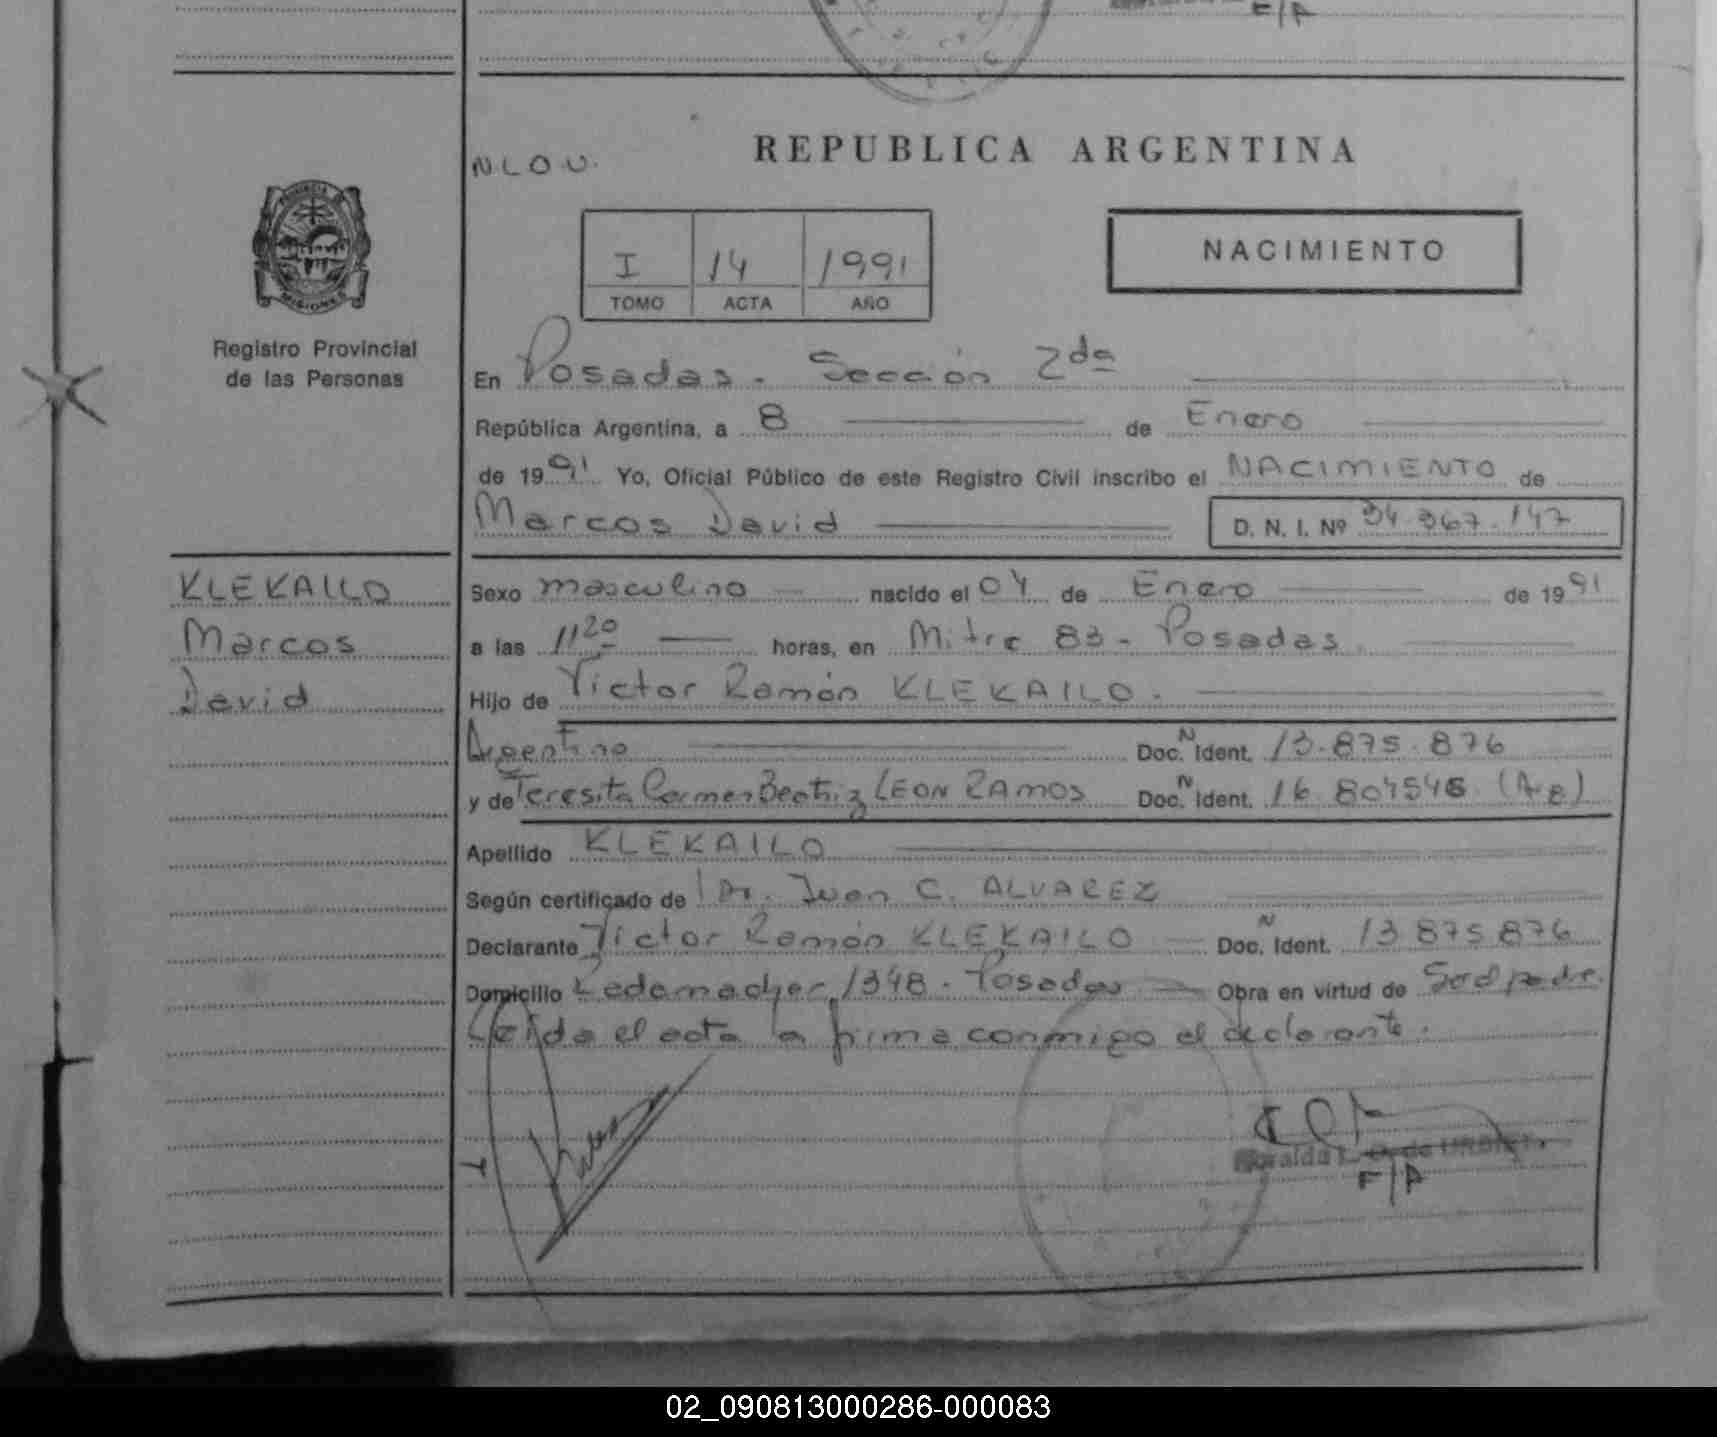 F/A
REPUBLICA ARGENTINA
N.L.O.U.
NACIMIENTO
I 14 1991
TOMO ACTA AÑO
MISIONES
Registro Provincial
de las Personas
En Posadas. Sección 2da
República Argentina, a 8 de Enero
de 1991 Yo, Oficial Público de este Registro Civil inscribo el NACIMIENTO de
Marcos David D. N. I. Nº 34.367.147
KLEKAILO
Marcos
David
Sexo masculino nacido el 04 de Enero de 1991
a las 11 20 horas, en Mitre 83 - Posadas.
Hijo de Victor Ramón KLEKAILO.
Argentino Doc. N Ident. 13.875.876
y de Teresita Carmen Beatriz LEON RAMOS Doc. N Ident. 16.804545 (Arg)
Apellido KLEKAILO
Según certificado de Dr. Juan C. ALVAREZ
Declarante Victor Ramón KLEKAILO Doc. N Ident. 13 875 876
Domicilio 1348 - Posadas Obra en virtud de Ser padre.
Leída el acta la firma conmigo el declarante.
F/A
02_090813000286-000083